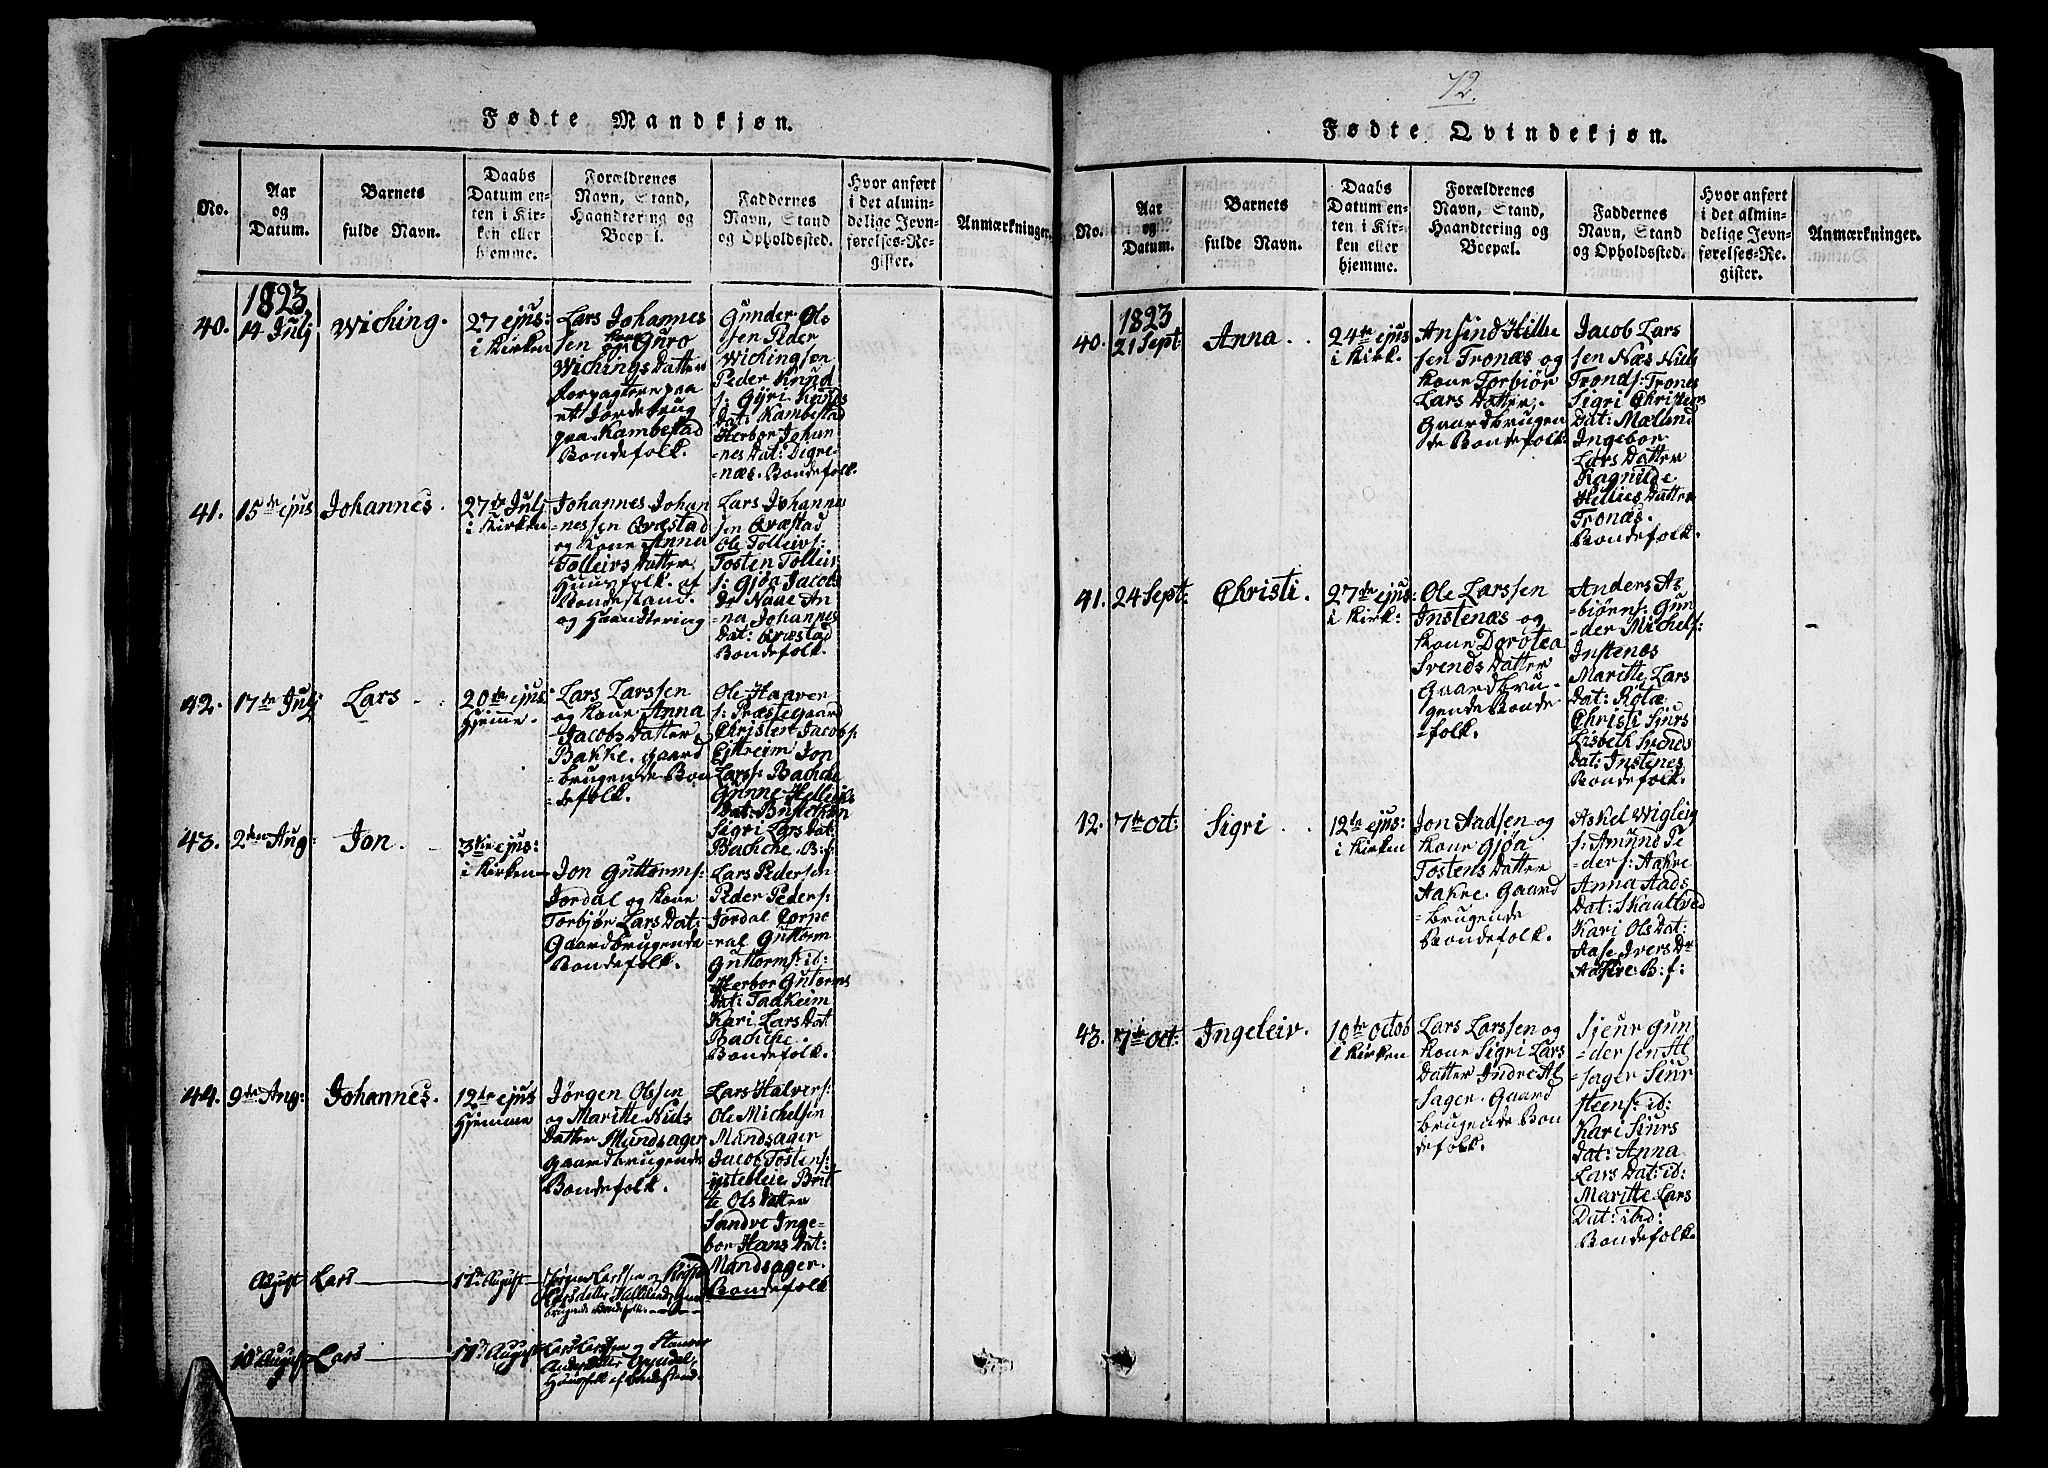 Fødte Mandkjøn.
No.
Aar
og
Datum.
Barnets
fulde Navn.
Daabs
Datum en-
ten i Kir-
ken eller
hjemme.
Forældrenes
Navn, Stand,
Haandtering og
Boepæl.
Faddernes
Navn, Stand
og Opholdssted.
Hvor anført
i det almin-
delige Jevn-
førelses-Re-
gister.
Anmærkninger.
1823
40.
14 Julj
Wiching.
27 ejus:
i Kirken
Lars Johannes
sen og Kone Guro
Wichings Datter
forpagtere paa
et Jordebrug
paa Kambestad
Bondefolk.
Gunder Ols
sen Peder
Wichingsen
Peder Knud
s: Gÿri Hans
Dat: Kambestad
Herbor Johan
=nes Dat: Digre-
næs. Bondefolk
41.
15de ejus
Johannes.
27de Julj
i Kirken
Johannes Johan
=nessen Qvæstad
og Kone Anna
Tolleivs Datter
Huusfolk af
Bondestand.
og Haandtering
Lars Johannes
sen Qvæstad
Ole Tolleivs:
Tosten Tolleiv
s: Gjøa Jacobs
Dr Naae An
na Johannes
Dat: Qvæstad
Bondefolk.
42.
17de Julj
Lars
20de ejus
Hjemme.
Lars Larssen
og Kone Anna
Jacobs Datter
Bakke. Gaard
=brugende Bon
=defolk.
Ole Haaver
s: Præstegaard
Christen Jacobs:
Eittreim Jon
Lars: Bachche
Gunne Helleiks
Dat: Busletten
Sigri Lars Dat:
Bachche. B:f:
43.
2den Aug:
Jon.
3die ejus:
i Kirken
Jon Guttorms:
Jordal og Kone
Torbjør Lars Dat:
Gaardbrugende
Bondefolk.
Lars Pedersen
Peder Peders:
Jordal Corpo
=ral Guttorm
Guttorms: id:
Herbor Gutorms
Dat: Taakeim
Kari Lars Dat
Bachche.
Bondefolk.
44.
9de Aug:
Johannes.
12te ejus
Hjemme
Jørgen Olssen
og Maritte Niels
Datter Mundsager
Gaardbrugende
Bondefolk.
Lars Halvers:
Ole Michelsen
Mandsager
Jacob Tostens:
ÿstebleie Brit
te Ols Datter
Sandve Inge-
bor Hans Dat:
Mandsager.
Bondefolk
August
Lars
17de August
Jørgen Larssen og
Larsdatter
brugende Bondefolk.
10de August
Lars
17de August
Lars Larssen og
Andersdatter
Huusfolk af Bondestand.
72.
Fødte Qvindekjøn.
No.
Aar
og
Datum.
Barnets
fulde Navn.
Daabs
Datum en-
ten i Kir-
ken eller
hjemme.
Forældrenes
Navn, Stand,
Haandtering og
Boepæl.
Faddernes
Navn, Stand
og Opholdssted.
Hvor anført
i det almin-
delige Jevn-
førelses-Re-
gister.
Anmærkninger.
1823
40.
21 Sept
Anna
24de ejus:
i Kirk.
Ansind Hille
sen Tronæs og
Kone Torbiør
Lars Datter.
Gaardbrugen
de Bondefolk.
Jacob Lars
sen Næs Niels
Tronds: Trones
Sigri Christens
Dat: Mæland
Ingebor
Lars Datter
Ragnilde
Hellies Datter
Tronæs.
Bondefolk.
41.
24 Sept:
Christi.
27de ejus:
i Kirk:
Ole Larssen
Instenæs og
Kone Dorotea
Svends Datter
Gaardbru-
gende Bonde
=folk.
Anders As
=biørns: Gun
=der Michels:
Instenæs
Maritte Lars
Dat: Rotæ
Christi Siurs
Lisbeth Svends
Dat: Instenes
Bondefolk.
12.
7de Oct:
Sigri
12te ejus:
i Kirken
Jon Aadsen og
Kone Gjøa
Tostens Datter
Aakre. Gaard
=brugende
Bondefolk.
Askel Wigleig
s: Amÿnd Pe
=ders: Aakre
Anna Aads
Dat: Skaltved
Kari Ols Dat:
Aase Ivers Dr
Aakre. B:f:
43.
7de Oct:
Ingeleiv.
10de Octob
i Kirken
Lars Larssen og
Kone Sigri Lars
Datter Indre Al
=sager. Gaard
brugende Bon
defolk.
Sjeur Gun
=dersen Al
=sager Siur
steens: id:
Kari Siurs
Dat: Anna
Lars Dat: id:
Maritte Lars
Dat: ibid:
Bondefolk.